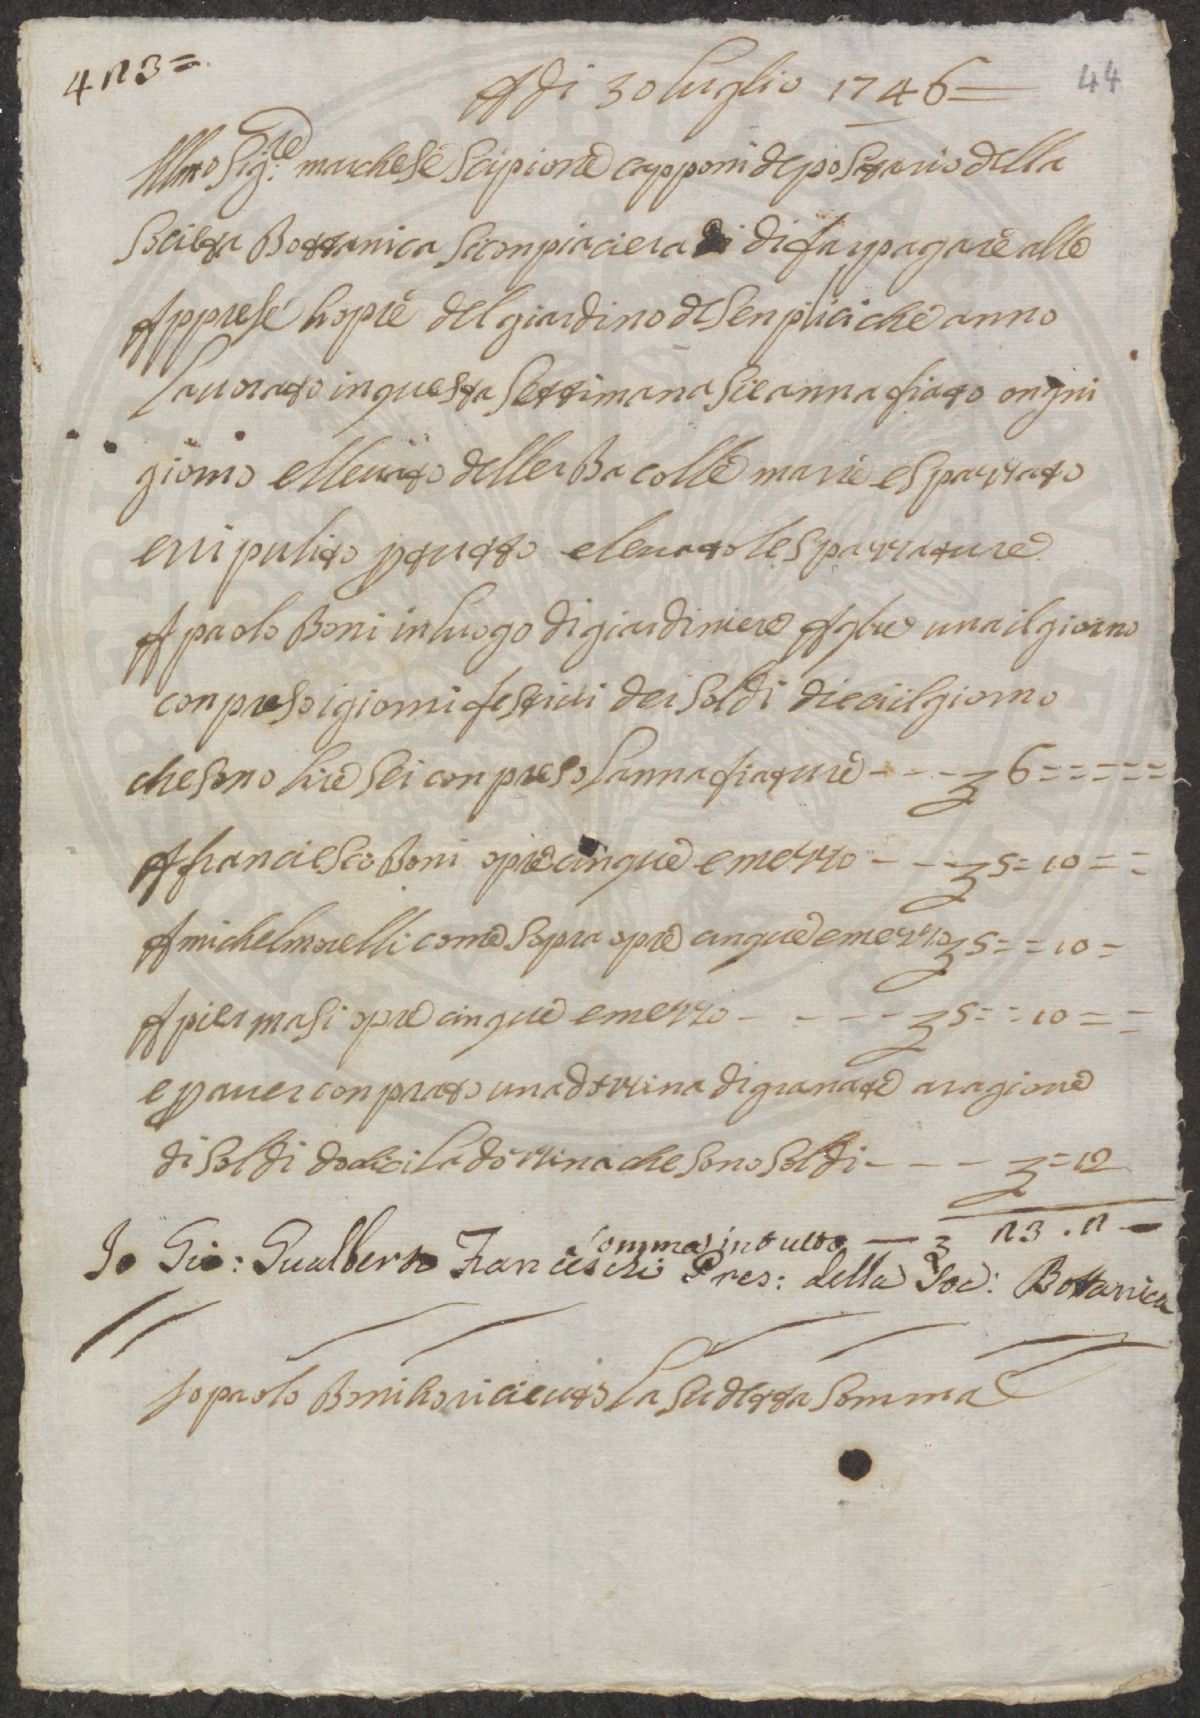 4 n 3 =
Adi 30 luglio 1746 =
44
Illmo Sig.re marchese Scipione capponi depositario della
Societa Bottanica si conpiaciera di far pagare alle
Apprese hopre del giardino de Senplici che anno
lavorato in questa Settimana Sie annafiato ongni
giorno e llevato dellerba colle marre e sparrato
e ripulito p tutto e levato le sparrature
A paolo Boni in luogo di giardiniere A lire una il giorno
conpreso i giorni festivi dei Soldi dieci il giorno
che sono lire Sei conpreso lannafiature - - - £ 6 = = = = =
A franciesco Boni opre cinque e mezzo - - - £ 5 = 10 = =
A michel morelli come Sopra opre cinque e mezzo £ 5 = = 10 =
A pier masi opre cinque e mezzo - - - - £ 5 = = 10 = =
e p aver conprato una dozzina di granate a ragione
di Soldi dodici la dozzina che sono Soldi - - - £ = 12
Somma in tutto — £ n3 . n —
Io Gio: Gualberto Franceschi Pres: della Soc: Bottanica
Io paolo Boni ho riceuto la Sudetta Somma